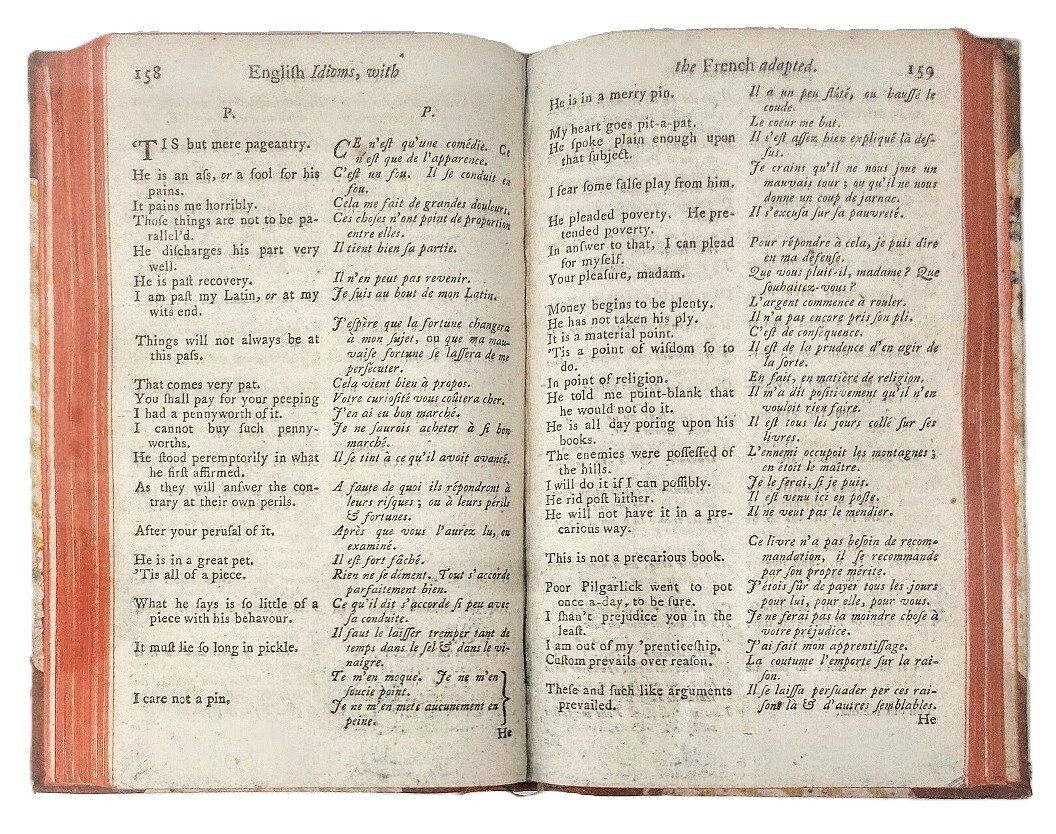 158 Engliſh Idioms, with
P.
'TIS but mere pageantry.
He is an aſs, or a fool for his
pains.
It pains me horribly.
Thoſe things are not to be pa-
rallel'd.
He diſcharges his part very
well.
He is paſt recovery.
I am paſt my Latin, or at my
wits end.
Things will not always be at
this paſs.
That comes very pat.
You ſhall pay for your peeping
I had a pennyworth of it.
I cannot buy ſuch penny-
worths.
He ſtood peremptorily in what
he firſt affirmed.
As they will anſwer the con-
trary at their own perils.
After your peruſal of it.
He is in a great pet.
'Tis all of a piece.
What he ſays is ſo little of a
piece with his behavour.
It muſt lie ſo long in pickle.
I care not a pin.
P.
CE n'eſt qu'une comédie. Ce
n'eſt que de l'apparence.
C'eſt un fou. Il ſe conduit en
fou.
Cela me fait de grandes douleurs.
Ces choſes n'ont point de proportion
entre elles.
Il tient bien ſa partie.
Il n'en peut pas revenir.
Je ſuis au bout de mon Latin.
J'eſpère que la fortune changera
à mon ſujet, ou que ma mau-
vaiſe fortune ſe laſſera de me
perſécuter.
Cela vient bien à propos.
Votre curioſité vous coûtera cher.
J'en ai eu bon marché.
Je ne ſaurois acheter à ſi bon
marché.
Il ſe tint à ce qu'il avoit avancé.
A faute de quoi ils répondront à
leurs riſques ; ou à leurs périls
& fortunes.
Après que vous l'aurez lu, ou
examiné.
Il eſt fort fâché.
Rien ne ſe dément. Tout s'accorde
parfaitement bien.
Ce qu'il dit s'accorde ſi peu avec
ſa conduite.
Il faut le laiſſer tremper tant de
temps dans le ſel & dans le vi-
naigre.
Te m'en moque. Je ne m'en
ſoucie point.
Je ne m'en mets aucunement en
peine.
He
the French adapted. 159
He is in a merry pin.
My heart goes pit-a-pat.
He ſpoke plain enough upon
that ſubject.
I fear ſome falſe play from him.
He pleaded poverty. He pre-
tended poverty.
In anſwer to that, I can plead
for myſelf.
Your pleaſure, madam.
Money begins to be plenty.
He has not taken his ply.
It is a material point.
'Tis a point of wiſdom ſo to
do.
In point of religion.
He told me point-blank that
he would not do it.
He is all day poring upon his
books.
The enemies were poſſeſſed of
the hills.
I will do it if I can poſſibly.
He rid poſt hither.
He will not have it in a pre-
carious way.
This is not a precarious book.
Poor Pilgarlick went to pot
once a-day, to be ſure.
I ſhan't prejudice you in the
leaſt.
I am out of my 'prenticeſhip.
Cuſtom prevails over reaſon.
Theſe and ſuch like arguments
prevailed.
Il a un peu flûté, ou hauſſé le
coude.
Le coeur me bat.
Il s'eſt aſſez bien expliqué là deſ-
ſus.
Je crains qu'il ne nous joue un
mauvais tour ; ou qu'il ne nous
donne un coup de jarnac.
Il s'excuſa ſur ſa pauvreté.
Pour répondre à cela, je puis dire
en ma défenſe.
Que vous plait-il, madame ? Que
ſouhaitez-vous ?
L'argent commence à rouler.
Il n'a pas encore pris ſon pli.
C'eſt de conſéquence.
Il eſt de la prudence d'en agir de
la ſorte.
En fait, en matière de religion.
Il m'a dit poſitivement qu'il n'en
vouloit rien faire.
Il eſt tous les jours collé ſur ſes
livres.
L'ennemi occupoit les montagnes ;
en étoit le maître.
Je le ferai, ſi je puis.
Il eſt venu ici en poſte.
Il ne veut pas le mendier.
Ce livre n'a pas beſoin de recom-
mandation, il ſe recommande
par ſon propre mérite.
J'étois ſûr de payer tous les jours
pour lui, pour elle, pour vous.
Je ne ferai pas la moindre choſe à
votre préjudice.
J'ai fait mon apprentiſſage.
La coutume l'emporte ſur la rai-
ſon.
Il ſe laiſſa perſuader per ces rai-
ſons là & d'autres ſemblables.
He